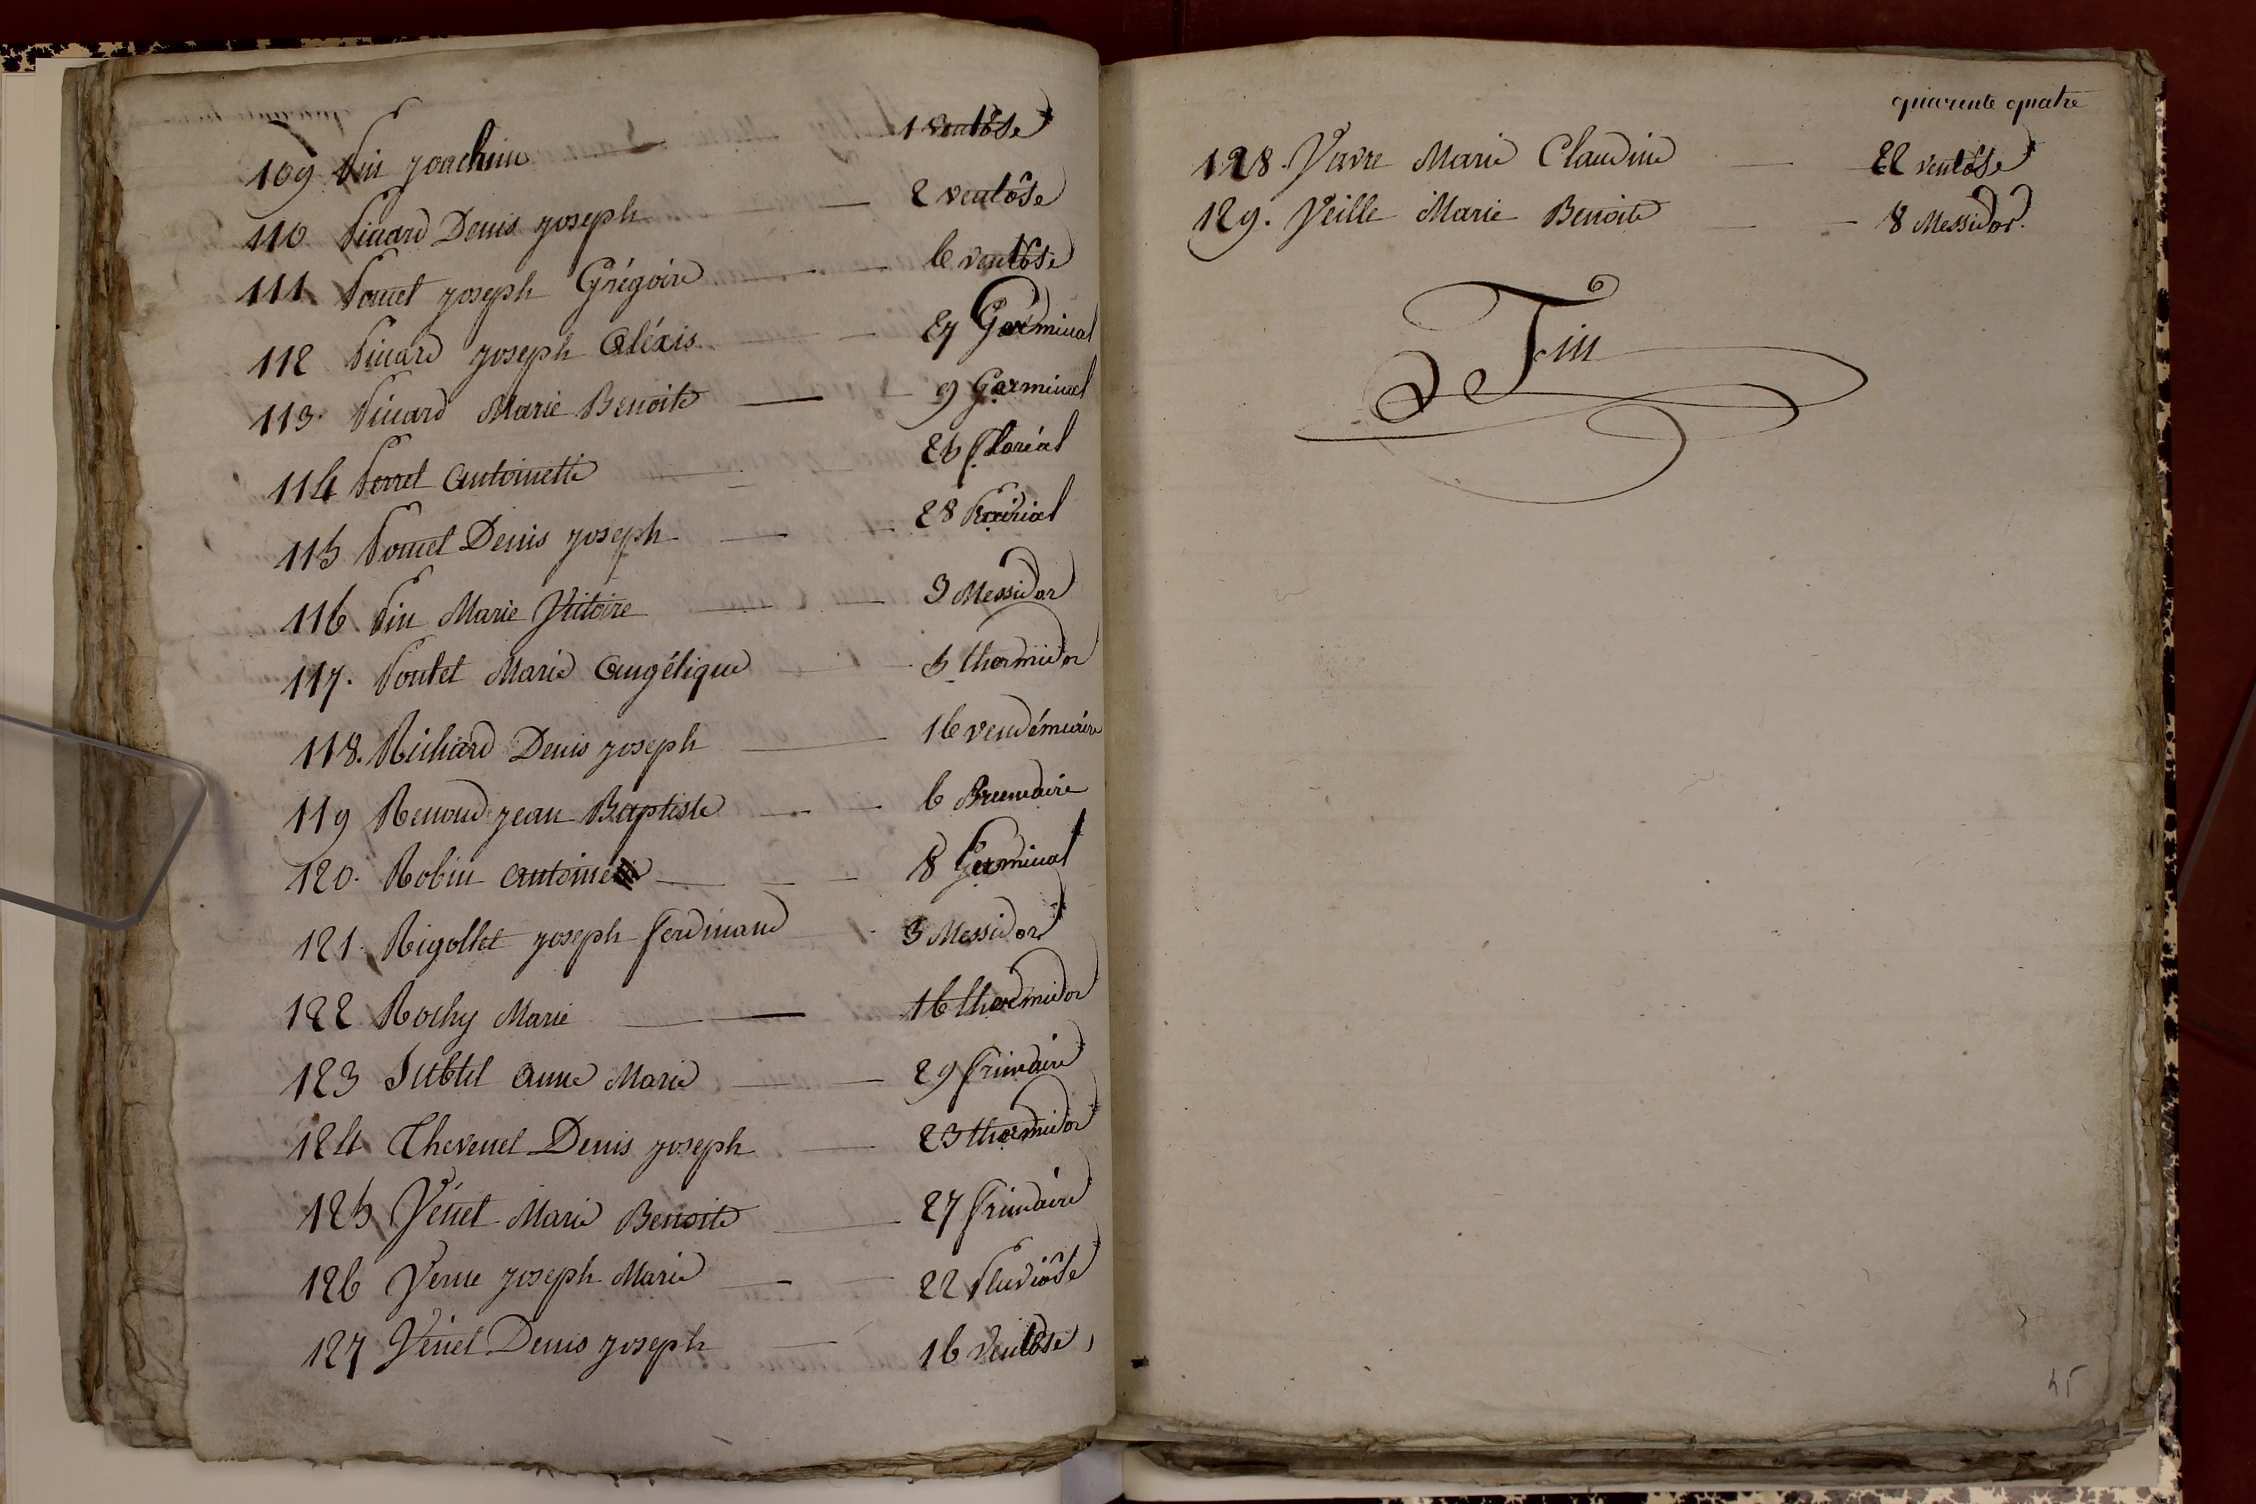 109 Pin joachim 1 ventôse
110 Pinard Denis joseph 2 ventôse
111 Ponet joseph Grégoire 6 ventôse
112 Pinard joseph Aléxis 27 Germinal
113. Pinard Marie Benoite 9 Germinal
114 Perret Antoinette 26 floréal
115 Ponet Denis joseph 28 Prairial
116 Pin Marie Vitoire 3 Messidor
117. Pontet Marie Angélique 5 thermidor
118. Richard Denis joseph 16 vendémiaire
119 Renoud jean Baptiste 6 Brumaire
120. Robin Antoine 8 Germinal
121. Rigollet joseph ferdinand 3 Messidor
122 Rochy Marie 16 thermidor
123 Subtil Anne Marie 29 frimaire
124 Thevenet Denis joseph 23 thermidor
125 Vénet Marie Benoite 27 frimaire
126 Verne joseph Marie 22 Pluviôse
127 Vénet Denis joseph 16 Ventôse
quarente quatre
128. Vavre Marie Claudine 22 ventôse
129. Veille Marie Benoite 8 Messidor.
Fin
45